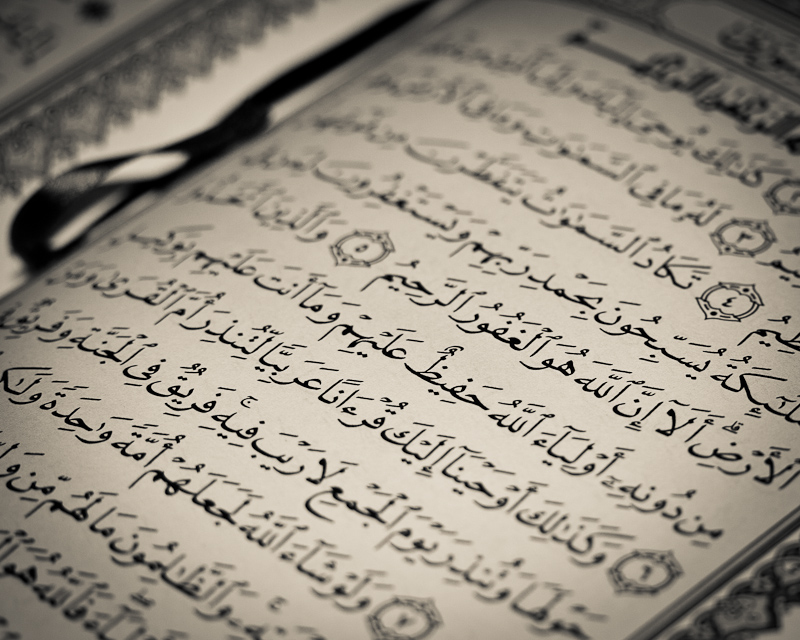 كَذَٰلِكَ يُوحِىٓ إِلَيْكَ وَإِلَى
٣ لَهُۥ مَا فِى ٱلسَّمَٰوَٰتِ وَمَا فِى ٱلْأَرْضِ
٤ تَكَادُ ٱلسَّمَٰوَٰتُ يَتَفَطَّرْنَ مِن
يُسَبِّحُونَ بِحَمْدِ رَبِّهِمْ وَيَسْتَغْفِرُونَ لِمَن
ٱلْأَرْضِ ۗ أَلَآ إِنَّ ٱللَّهَ هُوَ ٱلْغَفُورُ ٱلرَّحِيمُ ٥ وَٱلَّذِينَ
مِن دُونِهِۦٓ أَوْلِيَآءَ ٱللَّهُ حَفِيظٌ عَلَيْهِمْ وَمَآ أَنتَ عَلَيْهِم بِوَكِيلٍ
٦ وَكَذَٰلِكَ أَوْحَيْنَآ إِلَيْكَ قُرْءَانًا عَرَبِيًّا لِّتُنذِرَ أُمَّ ٱلْقُرَىٰ وَمَنْ
حَوْلَهَا وَتُنذِرَ يَوْمَ ٱلْجَمْعِ لَا رَيْبَ فِيهِ ۚ فَرِيقٌ فِى ٱلْجَنَّةِ وَفَرِيقٌ
٧ وَلَوْ شَآءَ ٱللَّهُ لَجَعَلَهُمْ أُمَّةً وَٰحِدَةً وَلَٰكِن
وَٱلظَّٰلِمُونَ مَا لَهُم مِّن
فَٱللَّهُ هُوَ